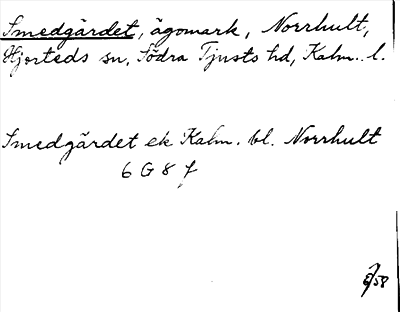 Smedgärdet, ägomark, Norrhult,
Hjorteds sn, Södra Tjusts hd, Kalm. l.
Smedgärdet ek Kalm. bl. Norrhult
6 G 8 f
/58